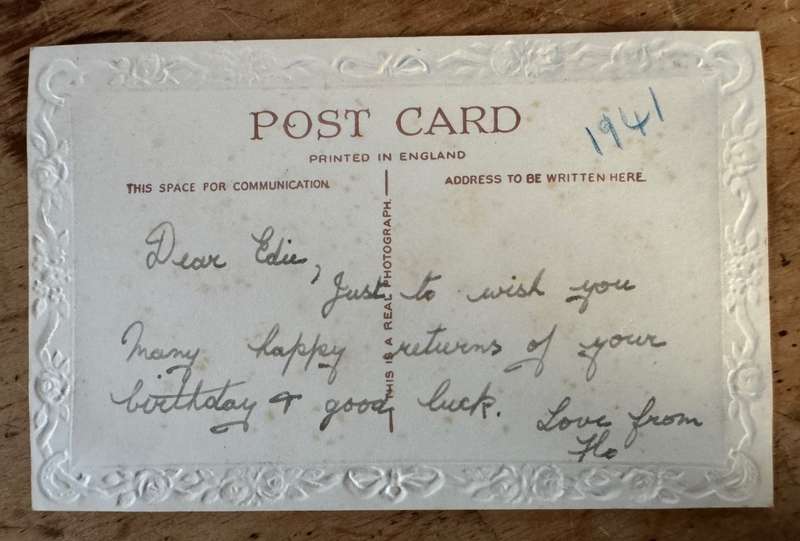 POST CARD
1941
PRINTED IN ENGLAND
THIS SPACE FOR COMMUNICATION.
ADDRESS TO BE WRITTEN HERE.
THIS IS A REAL PHOTOGRAPH.
Dear Edie,
Just to wish you
Many happy returns of your
birthday & good luck.
Love from
Flo